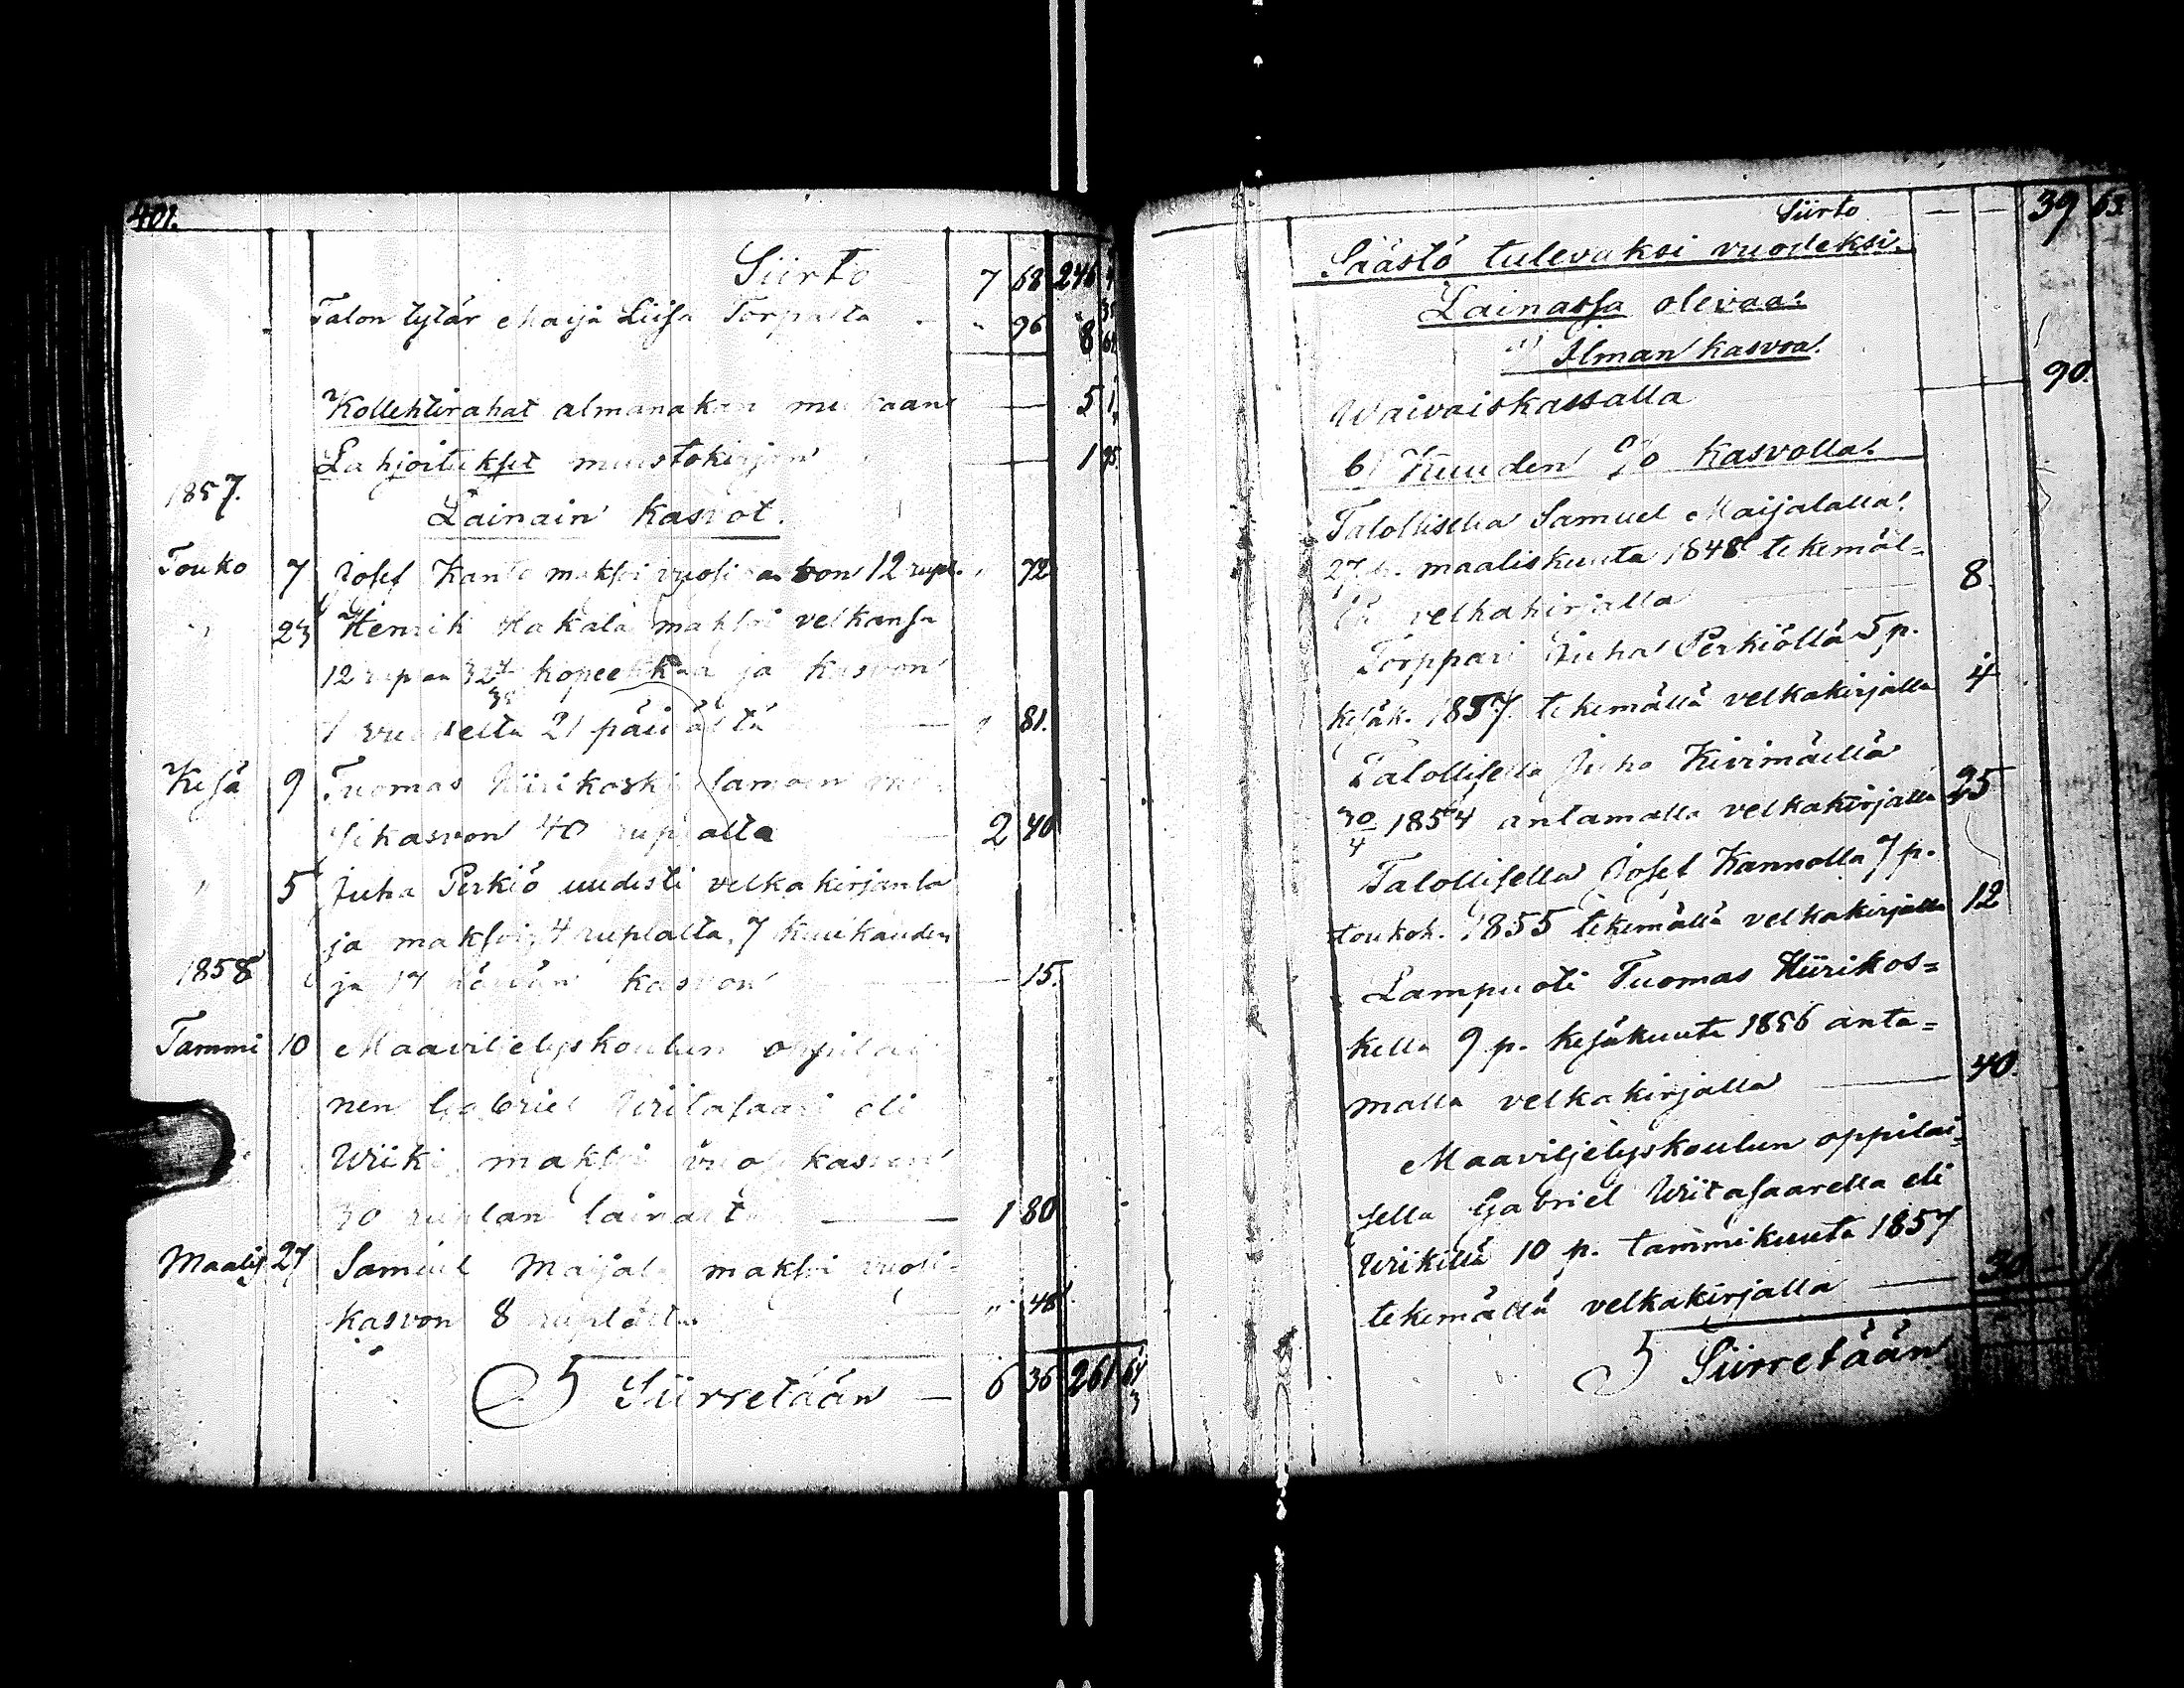 401.
Siirto 7 68 246
Talon tytär Maija Liisa Torpasta " 96 8 64
Kollehtirahat almanakan mukaans — 5
Lahjoitukset muistokirjan — 1 95
1857.
Lainain kasvot.
Touko 7 Josef Kanto maksoi vuosikasvon 12 rupl. " 72
" 23 Henrik Hakala maksoi velkansa
12 ruplan 32 4/35 kopeekkaa ja kasvon
1 vuodelta 21 päivältä — " 81.
Kesä 9 Tuomas Hiirikoski samoin vuo-
sikasvon 40 ruplalta — 2 40
" 5 Juha Perkiö uudisti velkakirjansa
ja maksoi 4 ruplalta, 7 kuukauden
1858 ja 17 päivän kasvon — 15.
Tammi 10 Maaviljelyskoulun oppilai-
nen Gabriel Wiitasaari eli
Wiiki maksoi vuosikasvon
30 ruplan lainasta — 1 80
Maalis 27 Samuel Maijala maksoi vuosi-
kasvon 8 ruplasta — " 48
Siirretään — 6 36 261 64
Siirto — — 39 63
Säästö tulevaksi vuodeksi.
Lainassa olevaa:
a) Ilman kasvoa.
Waivaiskassalla — 90.
b) Kuuden % kasvolla:
Talollisella Samuel Maijalalla:
27 p. maaliskuuta 1848 tekemäl=
lä velkakirjalla — 8.
Torppari Juha Perkiöllä 5 p.
kesäk. 1857 tekemällä velkakirjalla 4
Talollisella Juho Kivimäellä
30/4 1854 antamalla velkakirjalla 25
Talollisella Josef Kannolla 7 p.
toukok. 1855 tekemällä velkakirjalla 12
Lampuoti Tuomas Hiirikos=
kella 9 p. kesäkuuta 1856 anta=
malla velkakirjalla — 40.
Maaviljelyskoulun oppilai=
sella Gabriel Wiitasaarella eli
Wiikillä 10 p. tammikuuta 1857
tekemällä velkakirjalla — 30
Siirretään